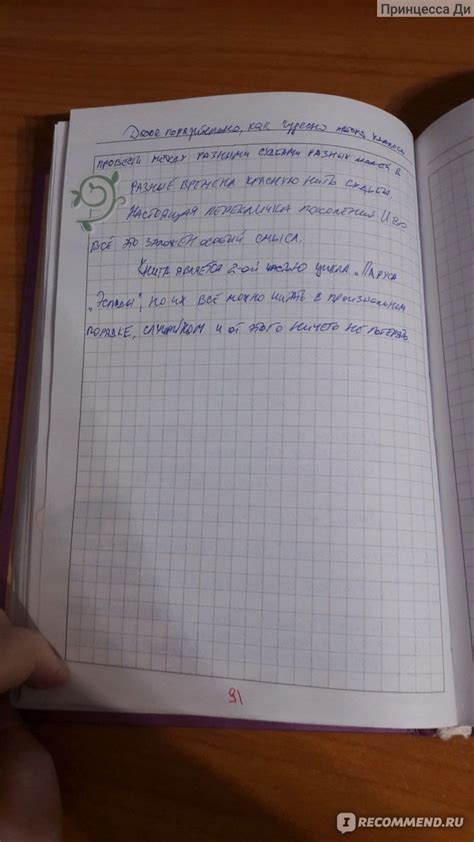 Принцесса Ди
Даже поразительно, как чудесно можно
провести между разными судьбами разных людей в
разные времена красную нить судьбы
Настоящая перекличка поколений И во
всё это заложен особый смысл.
Книга является 2-ой частью цикла „Паруса
„Эспады", но их всё можно читать в произвольном
порядке, и от этого ничего не потерять
91
IRECOMMEND.RU